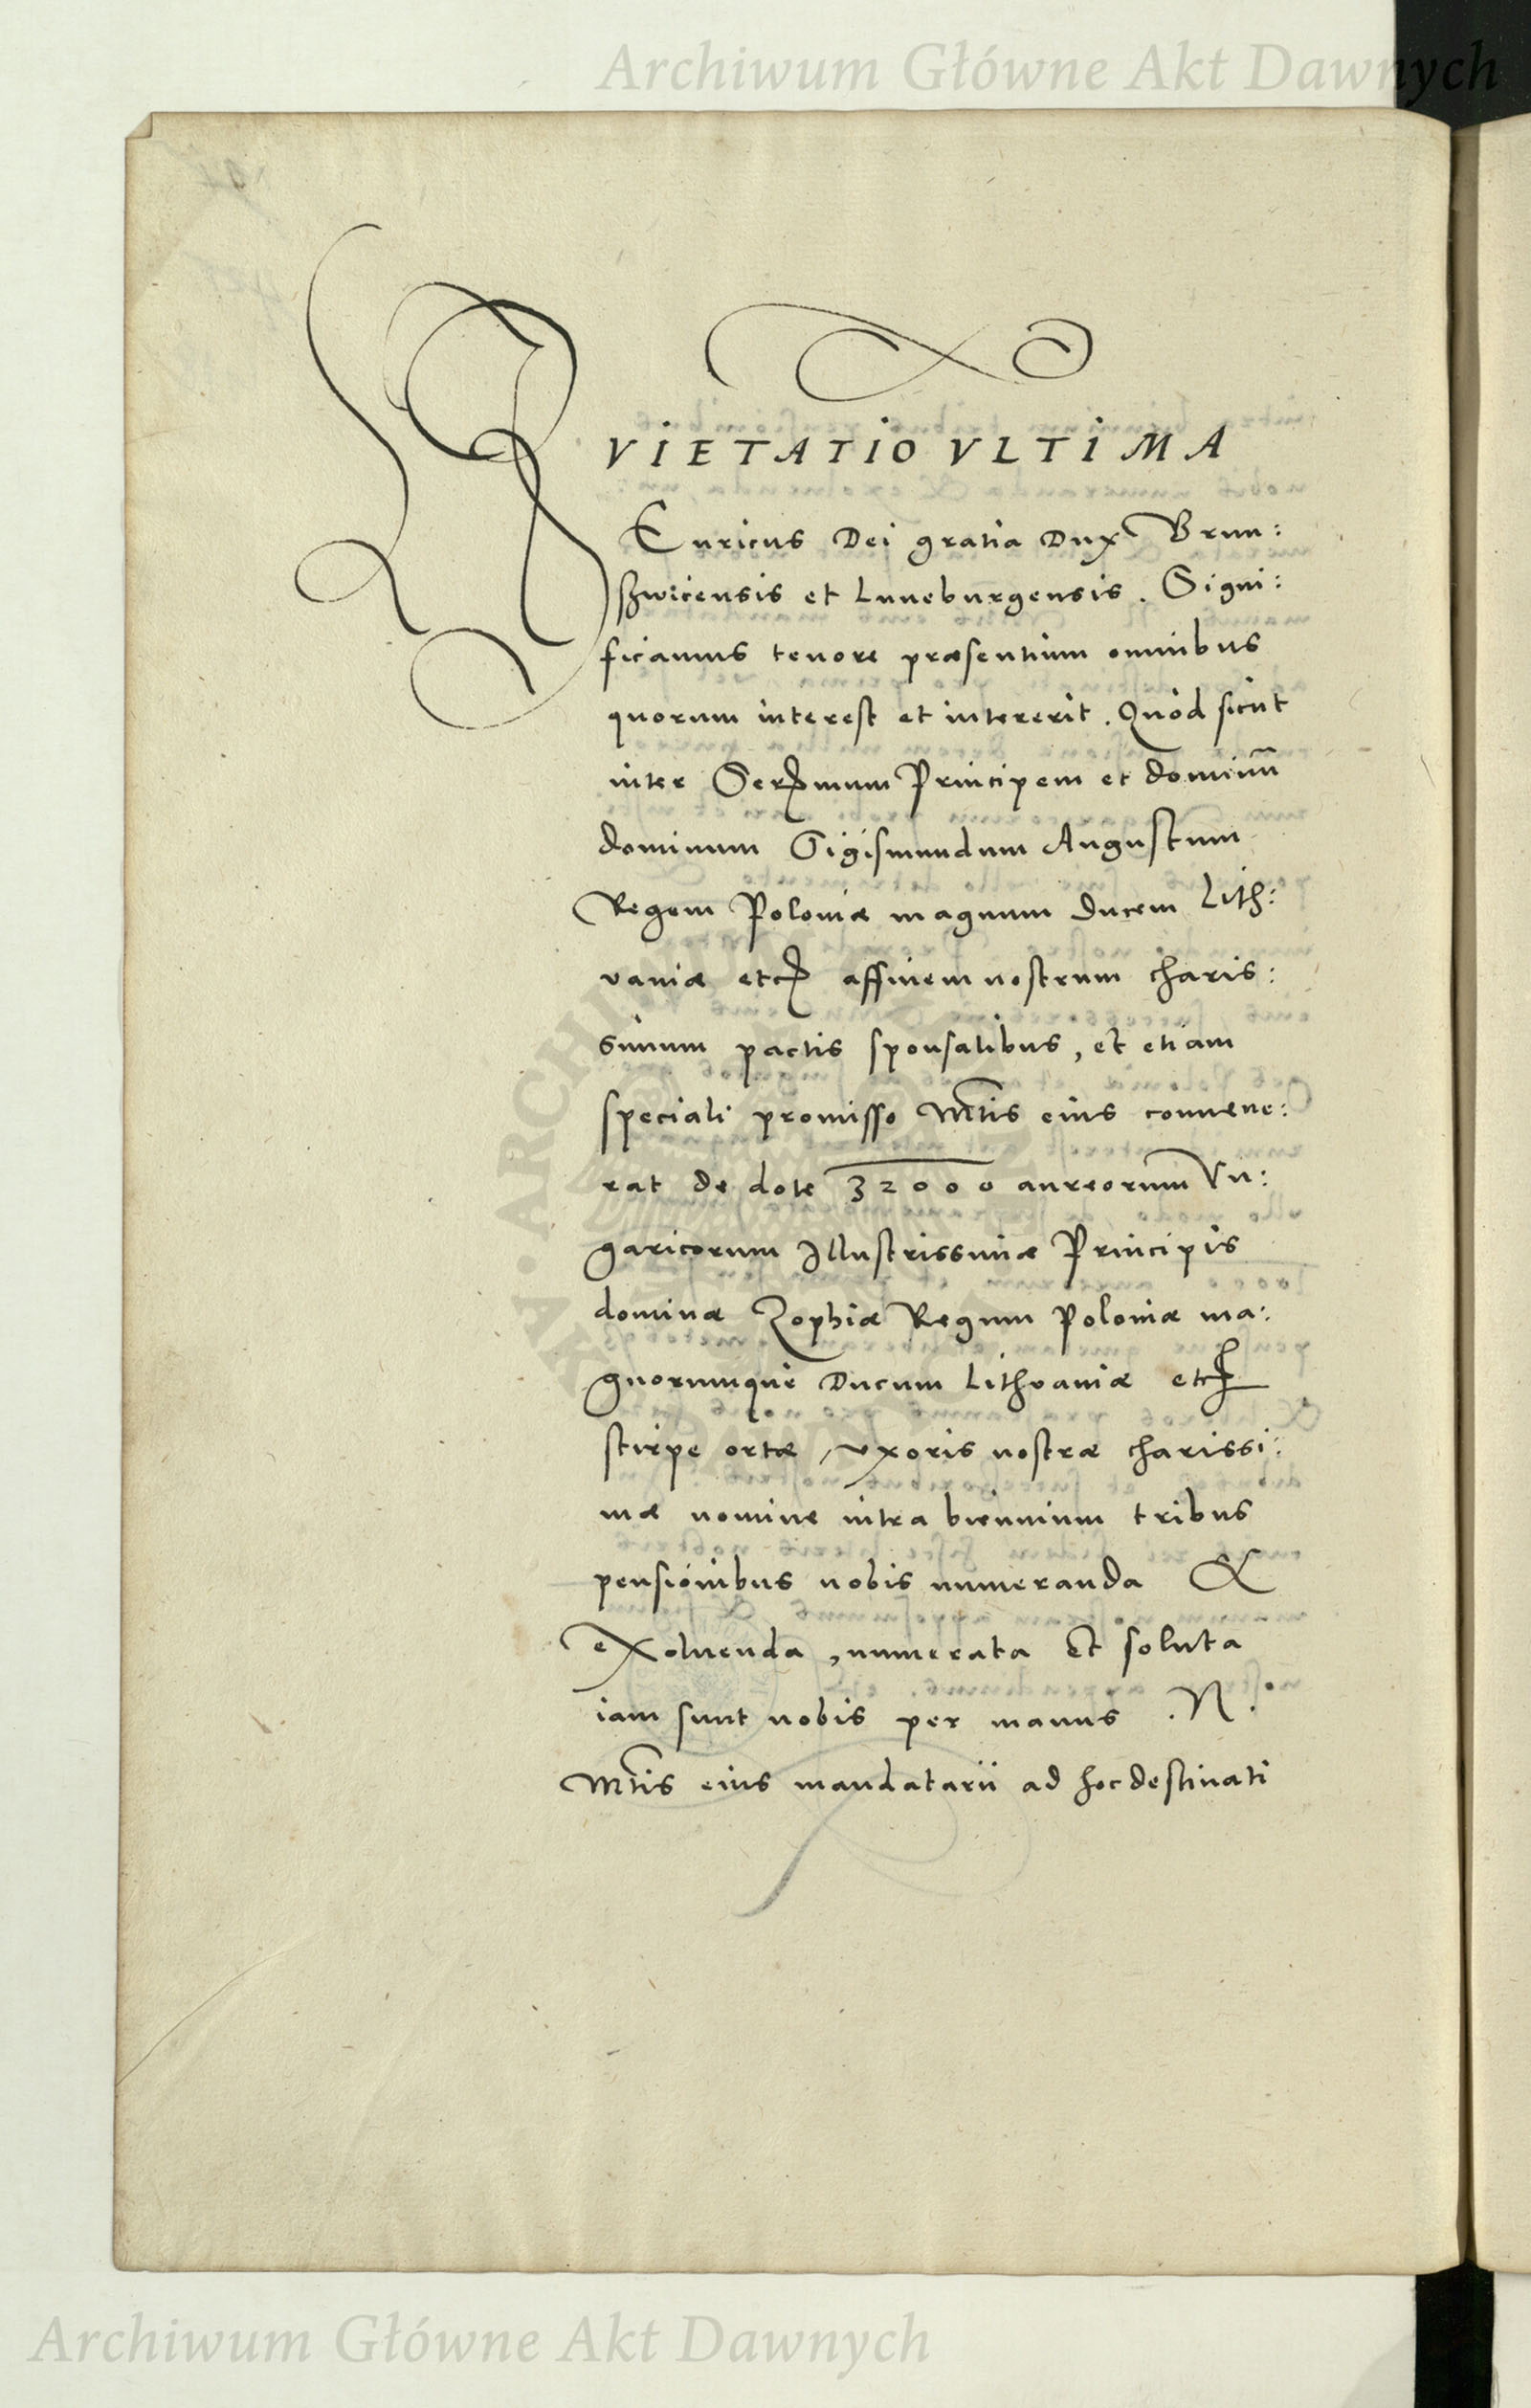 Archiwum Główne Akt Dawnych
QVIETATIO VLTIMA
Enricus Dei gratia Dux Brun:
szwicensis et Luneburgensis. Signi:
ficamus tenore præsentium omnibus
quorum interest et intererit. Quod sicut
inter Sermum Principem et dominū
dominum Sigismundum Augustum
Regem Poloniæ magnum Ducem Lith:
vaniæ etc affinem nostrum charis:
simum pactis sponsalibus, et etiam
speciali promisso Mtis eius convene:
rat de dote 32000 aureorum Vn:
garicorum Illustrissimæ Principis
dominæ Zophiæ Regum Poloniæ ma:
gnorumque Ducum Lithvaniæ etc
stirpe ortæ, vxoris nostræ charissi:
mæ nomine intra biennium tribus
pensionibus nobis numeranda &
exoluenda, numerata Et soluta
iam sunt nobis per manus .N.
Mtis eius mandatarii ad hoc destinati
Archiwum Główne Akt Dawnych